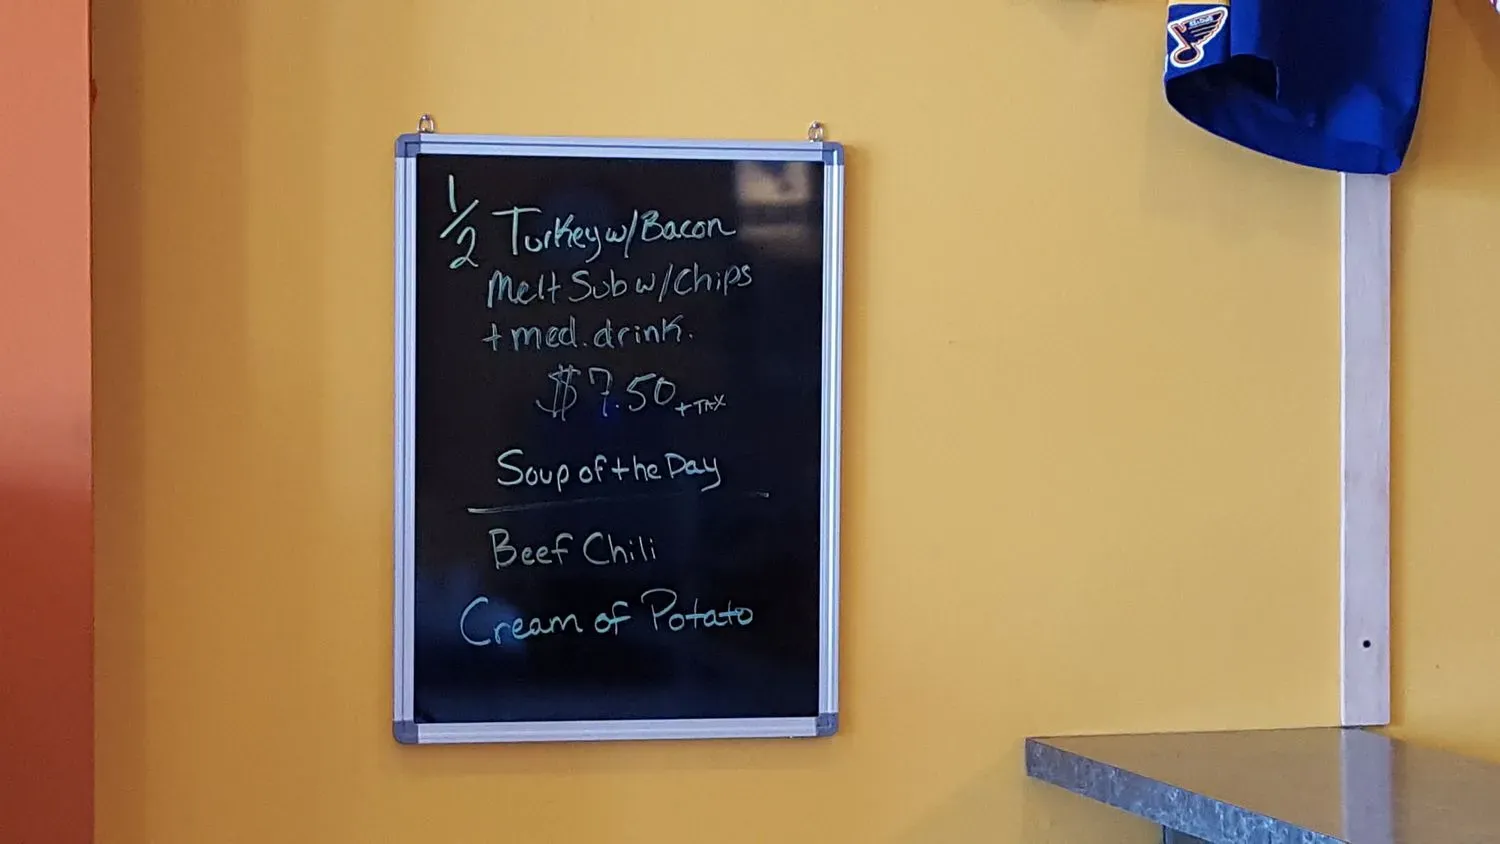 1/2 Turkey w/Bacon
Melt Sub w/Chips
+ med. drink.
$7.50 + TAX
Soup of the Day
Beef Chili
Cream of Potato